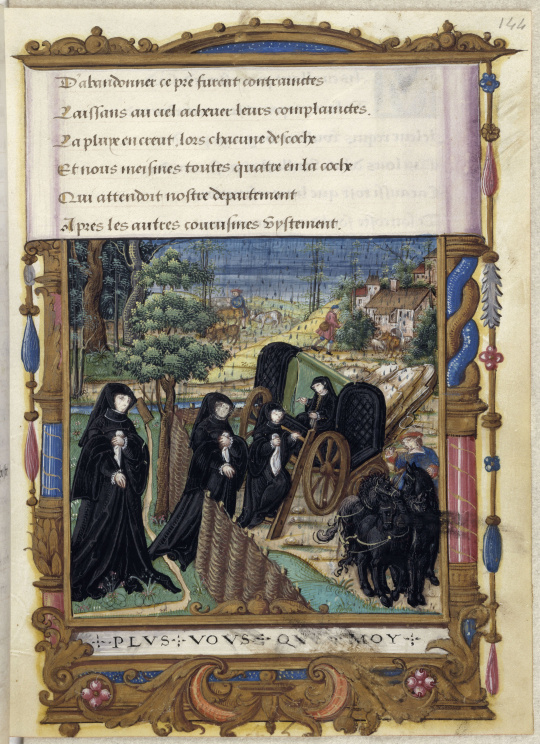 144
D'abandonner ce pre furent contrainctes
Laissans au ciel achever leurs complainctes.
La pluye en creut, lors chacune descoche
Et nous mesmes toutes quatre en la coche
Qui attendoit nostre departement
Apres les autres courusmes vystement.
PLVS VOVS QVE MOY